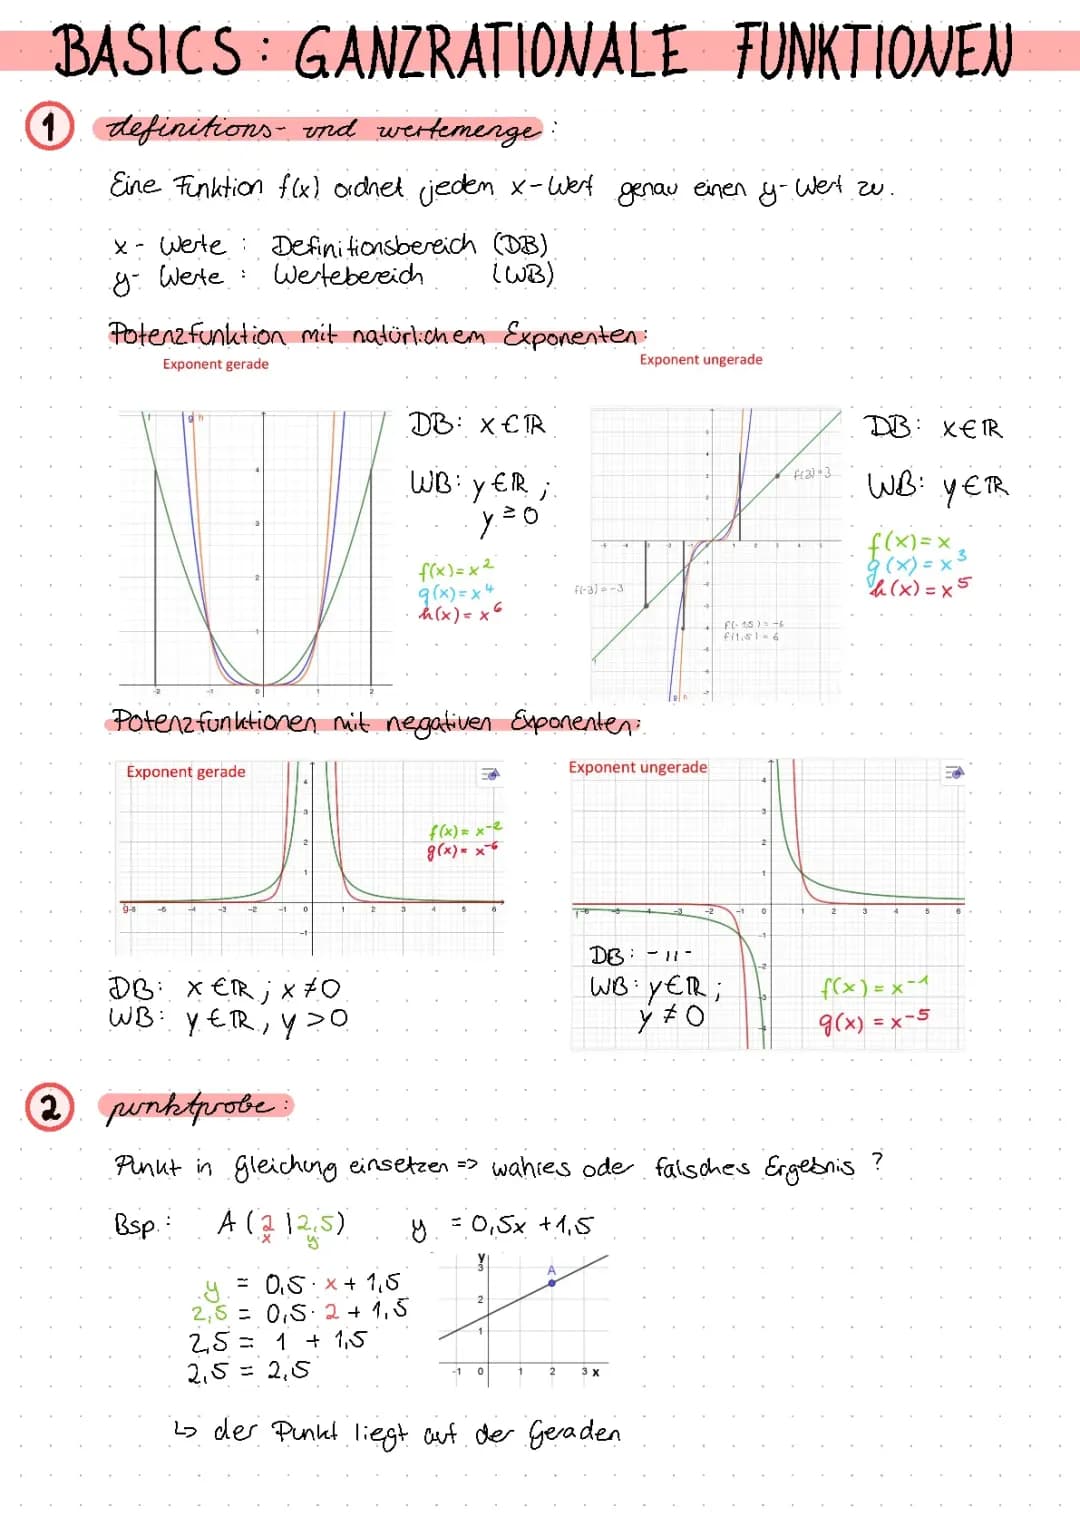 BASICS: GANZRATIONALE FUNKTIONEN
1 definitions- und wertemenge:
Eine Funktion f(x) ordnet jedem x-Wert genau einen y-Wert zu.
x- Werte : Definitionsbereich (DB)
y- Werte : Wertebereich (WB)
Potenzfunktion mit natürlichem Exponenten:
Exponent gerade
DB: x∈ℝ
WB: y∈ℝ;
y≥0
f(x)=x²
g(x)=x⁴
h(x)=x⁶
Exponent ungerade
f(3)=3
f(-3)=-3
f(-1.5)=-6
f(1,5)=6
DB: x∈ℝ
WB: y∈ℝ
f(x)=x
g(x)=x³
h(x)=x⁵
Potenzfunktionen mit negativen Exponenten:
Exponent gerade
f(x)=x⁻²
g(x)=x⁻⁶
DB: x∈ℝ; x≠0
WB: y∈ℝ, y>0
Exponent ungerade
DB: -11-
WB: y∈ℝ;
y≠0
f(x)=x⁻¹
g(x)=x⁻⁵
2 punktprobe:
Punkt in Gleichung einsetzen => wahres oder falsches Ergebnis ?
Bsp.: A(2|2,5) y = 0,5x +1,5
x y
y = 0,5·x + 1,5
2,5 = 0,5·2 + 1,5
2,5 = 1 + 1,5
2,5 = 2,5
y
3
A
2
1
-1 0 1 2 3 x
↳ der Punkt liegt auf der Geraden